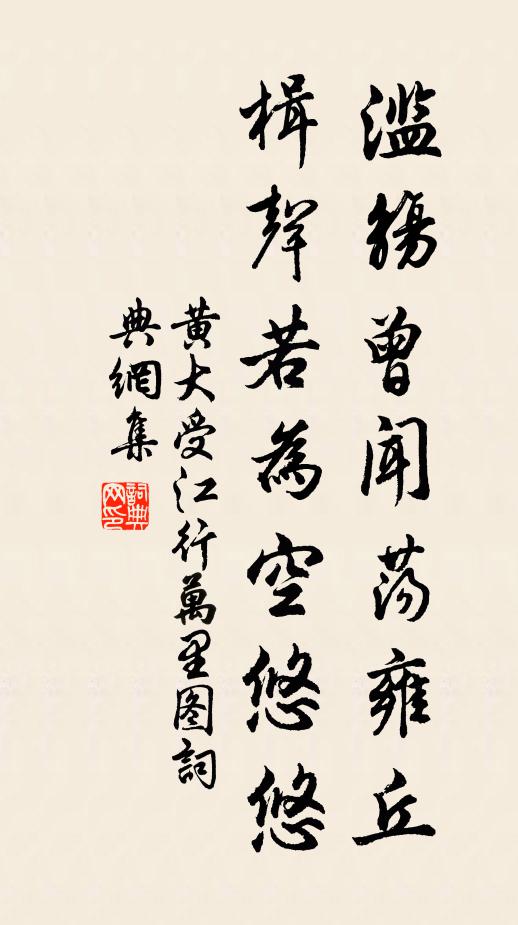 濫觴曾聞蕩雍丘
楫聲若為空悠悠
黃大受江行萬里图詞
典網集
詞典網印